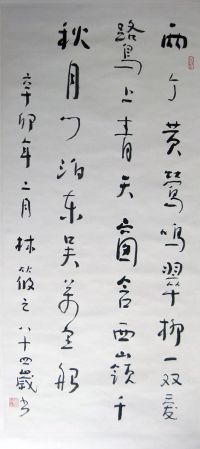 两个黄鶯鳴翠柳一双爱
鷺上青天窗含西嶺千
秋月门泊东吴万里船
辛卯年二月林筱之八十四歲书